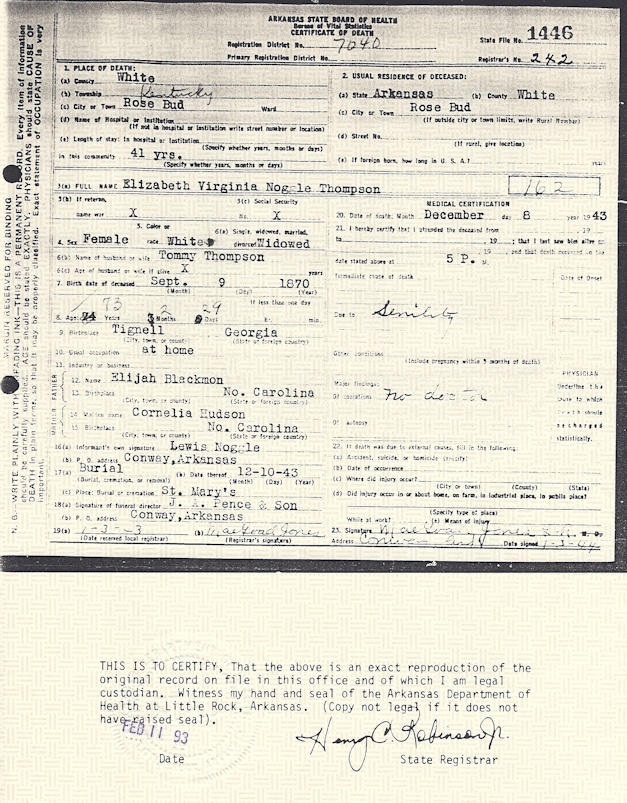 ARKANSAS STATE BOARD OF HEALTH
Bureau of Vital Statistics
CERTIFICATE OF DEATH
Registration District No. 7040
State File No. 1446
Primary Registration District No.
Registrar's No. 242
1. PLACE OF DEATH:
(a) County White
(b) Township Kentucky
(c) City or Town Rose Bud Ward
(d) Name of Hospital or Institution
(If not in hospital or institution write street number or location)
(e) Length of stay: In hospital or Institution
(Specify whether years, months or days)
In this community 41 yrs.
(Specify whether years, months or days)
2. USUAL RESIDENCE OF DECEASED:
(a) State Arkansas (b) County White
(c) City or Town Rose Bud
(If outside city or town limits, write Rural Number)
(d) Street No.
(If rural, give location)
(e) If foreign born, how long in U. S. A.? years
3(a) FULL NAME Elizabeth Virginia Noggle Thompson
162
3(b) If veteran, name war X
3(c) Social Security No. X
4. Sex Female
5. Color or race White
6(a) Single, widowed, married, divorced Widowed
6(b) Name of husband or wife Tommy Thompson
6(c) Age of husband or wife if alive X years
7. Birth date of deceased Sept. 9 1870
(Month) (Day) (Year)
If less than one day
8. Age: 73 Years 2 Months 29 Days hr. min.
9. Birthplace Tignell Georgia
(City, town, or county) (State or foreign country)
10. Usual occupation at home
11. Industry or business
FATHER
12. Name Elijah Blackmon
13. Birthplace No. Carolina
(City, town, or county) (State or foreign country)
MOTHER
14. Maiden name Cornelia Hudson
15. Birthplace No. Carolina
(City, town, or county) (State or foreign country)
16(a) Informant's own signature Lewis Noggle
(b) P. O. Address Conway, Arkansas
17(a) Burial (b) Date thereof 12-10-43
(Burial, cremation, or removal) (Month) (Day) (Year)
(c) Place: Burial or cremation St. Mary's
18(a) Signature of funeral director J. A. Pence & Son
(b) P. O. Address Conway, Arkansas
19(a) 1-3--3 (b)
(Date received local registrar) (Registrar's signature)
MEDICAL CERTIFICATION
20. Date of death: Month December day 8 year 1943
21. I hereby certify that I attended the deceased from , 19
to , 19 ; that I last saw him alive on
, 19 , and that death occurred on the
date stated above at 5 P. M.
Immediate cause of death Date of Onset
Due to Senility
Other conditions
(Include pregnancy within 3 months of death)
PHYSICIAN
Underline the cause to which death should be charged statistically.
Major findings:
Of operations no doctor
Of autopsy
22. If death was due to external causes, fill in the following:
(a) Accident, suicide, or homicide (specify)
(b) Date of occurrence
(c) Where did injury occur?
(City or town) (County) (State)
(d) Did injury occur in or about home, on farm, in industrial place, in public place?
(Specify type of place)
While at work? (e) Means of injury
23. Signature M. D.
Address Conway Ark Date signed 1-3-44
MARGIN RESERVED FOR BINDING
N. B.—WRITE PLAINLY WITH UNFADING INK—THIS IS A PERMANENT RECORD. Every item of information
should be carefully supplied. AGE should be stated EXACTLY. PHYSICIANS should state CAUSE OF
DEATH in plain terms, so that it may be properly classified. Exact statement of OCCUPATION is very
important.
THIS IS TO CERTIFY, That the above is an exact reproduction of the
original record on file in this office and of which I am legal
custodian. Witness my hand and seal of the Arkansas Department of
Health at Little Rock, Arkansas. (Copy not legal if it does not
have raised seal).
FEB 11 93
Henry C. Robinson Jr.
Date State Registrar